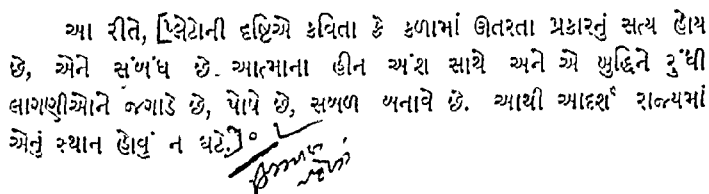 આ રીતે, [પ્લેટોની દૃષ્ટિએ કવિતા કે કળામાં ઊતરતા પ્રકારનું સત્ય હોય
છે, એને સંબંધ છે. આત્માના હીન અંશ સાથે અને એ બુદ્ધિને રુંધી
લાગણીઓને જગાડે છે, પોષે છે, સબળ બનાવે છે. આથી આદર્શ રાજ્યમાં
એનું સ્થાન હોવું ન ઘટે.]